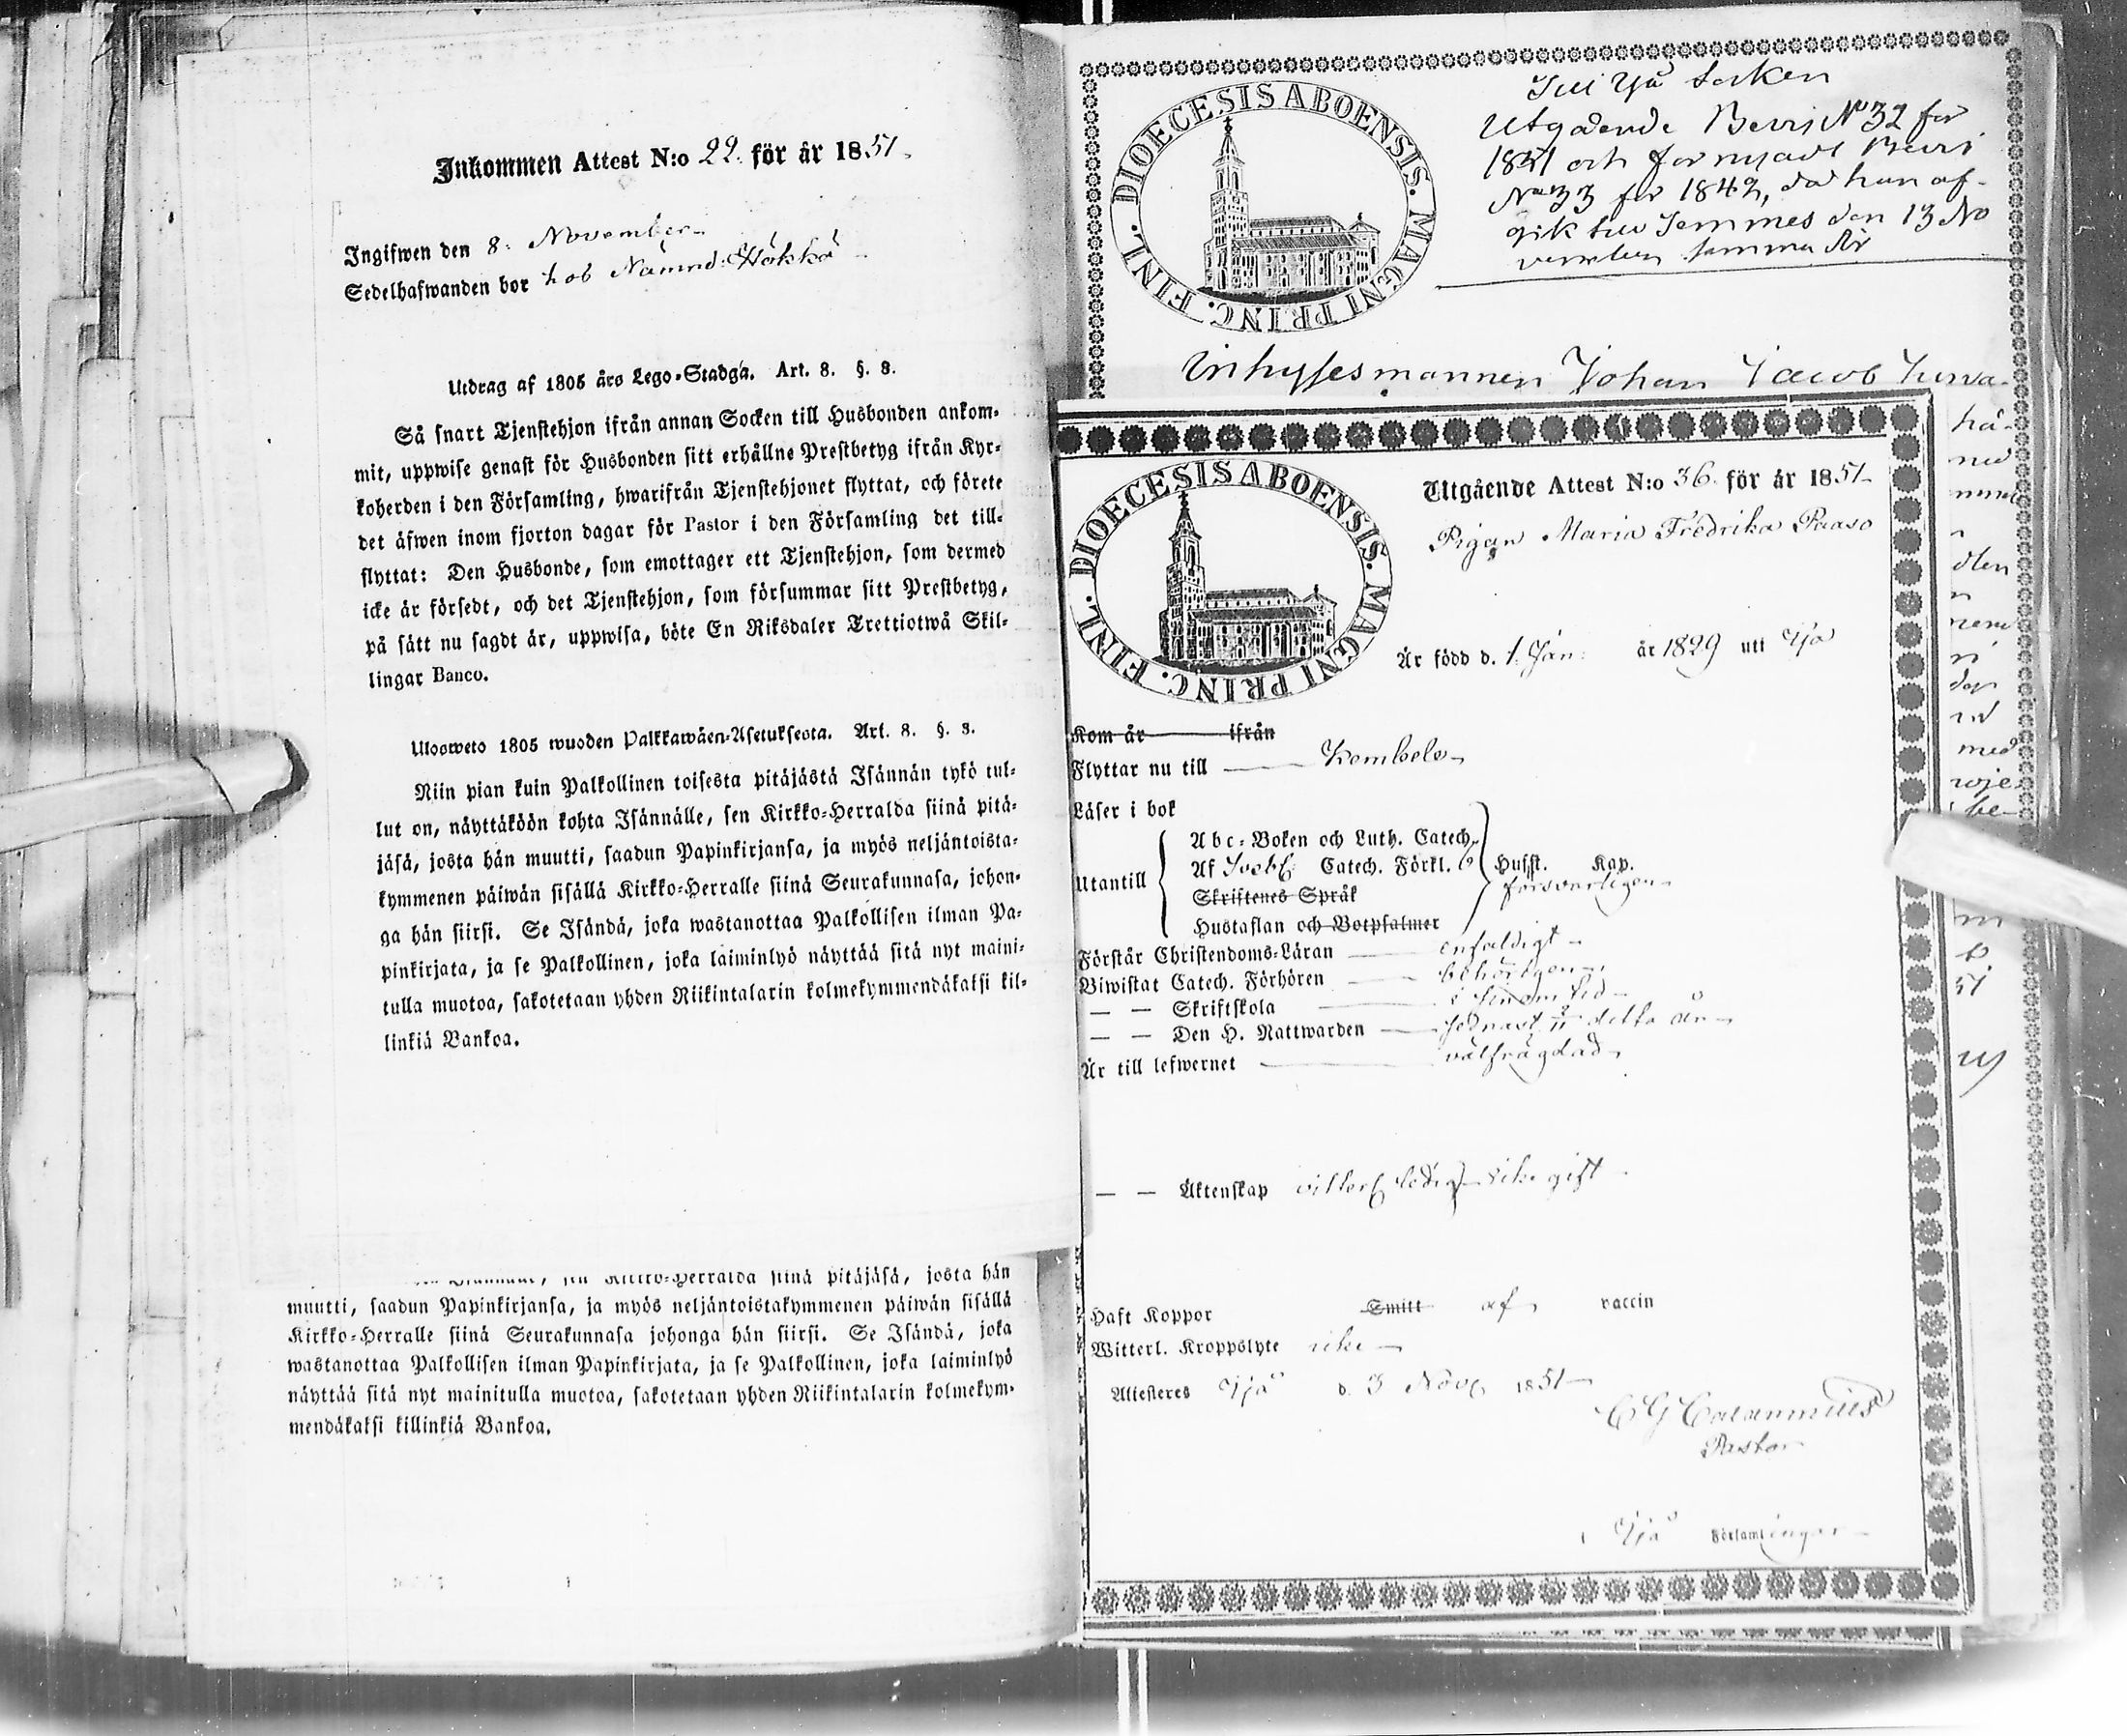 Inkommen Attest N:o 22. för år 1851.
Ingifwen den 8. November
Sedelhafwanden bor hos Nämnd: Häkkä
Utdrag af 1805 års Lego-Stadga. Art. 8. §. 3.
Så snart Tjenstehjon ifrån annan Socken till Husbonden ankom-
mit, uppwise genast för Husbonden sitt erhållne Prestbetyg ifrån Kyr-
koherden i den Församling, hwarifrån Tjenstehjonet flyttat, och förete
det äfwen inom fjorton dagar för Pastor i den Församling det till-
flyttat: Den Husbonde, som emottager ett Tjenstehjon, som dermed
icke är försedt, och det Tjenstehjon, som försummar sitt Prestbetyg,
på sätt nu sagdt är, uppwisa, böte En Riksdaler Trettiotwå Skil-
lingar Banco.
Ulosweto 1805 wuoden Palkkawäen-Asetuksesta. Art. 8. §. 3.
Niin pian kuin Palkollinen toisesta pitäjästä Isännän tykö tul-
lut on, näyttäköön kohta Isännälle, sen Kirkko-Herralda siinä pitä-
jäsä, josta hän muutti, saadun Papinkirjansa, ja myös neljäntoista-
kymmenen päiwän sisällä Kirkko-Herralle siinä Seurakunnasa, johon-
ga hän siirsi. Se Isändä, joka wastanottaa Palkollisen ilman Pa-
pinkirjata, ja se Palkollinen, joka laiminlyö näyttää sitä nyt maini-
tulla muotoa, sakotetaan yhden Riikintalarin kolmekymmendäkaksi kil-
linkiä Bankoa.
Kirkko-Herralda siinä pitäjäsä, josta hän
muutti, saadun Papinkirjansa, ja myös neljäntoistakymmenen päiwän sisällä
Kirkko-Herralle siinä Seurakunnasa johonga hän siirsi. Se Isändä, joka
wastanottaa Palkollisen ilman Papinkirjata, ja se Palkollinen, joka laiminlyö
näyttää sitä nyt mainitulla muotoa, sakotetaan yhden Riikintalarin kolmekym-
mendäkaksi killinkiä Bankoa.
DIOECESIS ABOENSIS. MAGNI PRINC. FINL.
Till Ijå Socken
Utgående Bevis No 32 för
1851 och förnyadt Bevis
No 33 för 1842, då han af-
gik till Temmes den 13 No
vember samma år
Inhysesmannen Johan Jacob
DIOECESIS ABOENSIS. MAGNI PRINC. FINL.
Utgående Attest N:o 36. för år 1851
Pigan Maria Fredrika Paaso
Är född d. 1. Jan: år 1829 utt Ijå
Kom år ifrån
Flyttar nu till Kembele
Läser i bok
Abc-Boken och Luth. Catech.
Utantill
Af Catech. Förkl. Husst. Kap.
försvarligen
Skriftenes Språk
Hustaflan och Botpsalmer
Förstår Christendoms-Läran enfaldigt
Biwistat Catech. Förhören behörigen
— — Skriftskola i sinom tid
— — Den H. Nattwarden sednast i detta år
Är till lefwernet välfrägdad
— — Äktenskap vitterl. ledig icke gift
Haft Koppor Smitt af vaccin
Witterl. Kroppslyte icke
Attesteres Ijå d. 3 Nov. 1851
Pastor
i Ijå Församlingar